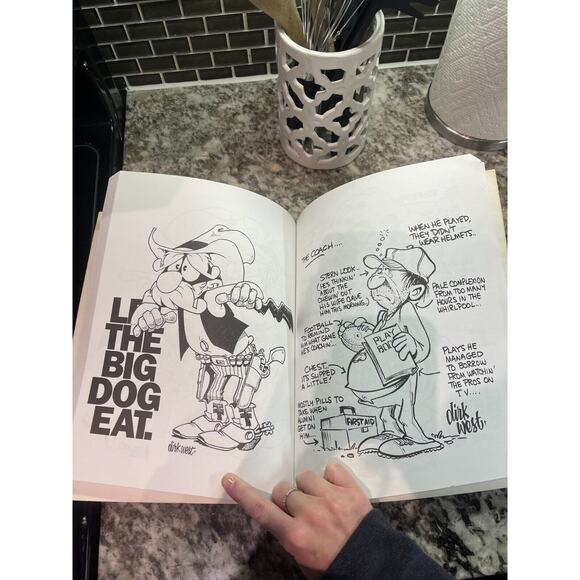 LE
THE
BIG
DOG
EAT.
dirk west.
THE COACH....
STERN LOOK..
(HE'S THINKIN'
ABOUT THE
CHEWIN' OUT
HIS WIFE GAVE
HIM THIS MORNING.)
FOOTBALL
TO REMIND
HIM WHAT GAME
HE'S COACHIN...
CHEST..
IT'S SLIPPED
A LITTLE!
MOSTLY PILLS TO
TAKE WHEN
ALUMNI
GET ON
HIM....
FIRST AID
PLAY
WHEN HE PLAYED,
THEY DIDN'T
WEAR HELMETS..
PALE COMPLEXION
FROM TOO MANY
HOURS IN THE
WHIRLPOOL...
PLAYS HE
MANAGED
TO BORROW
FROM WATCHIN'
THE PROS ON
TV....
dirk
west.